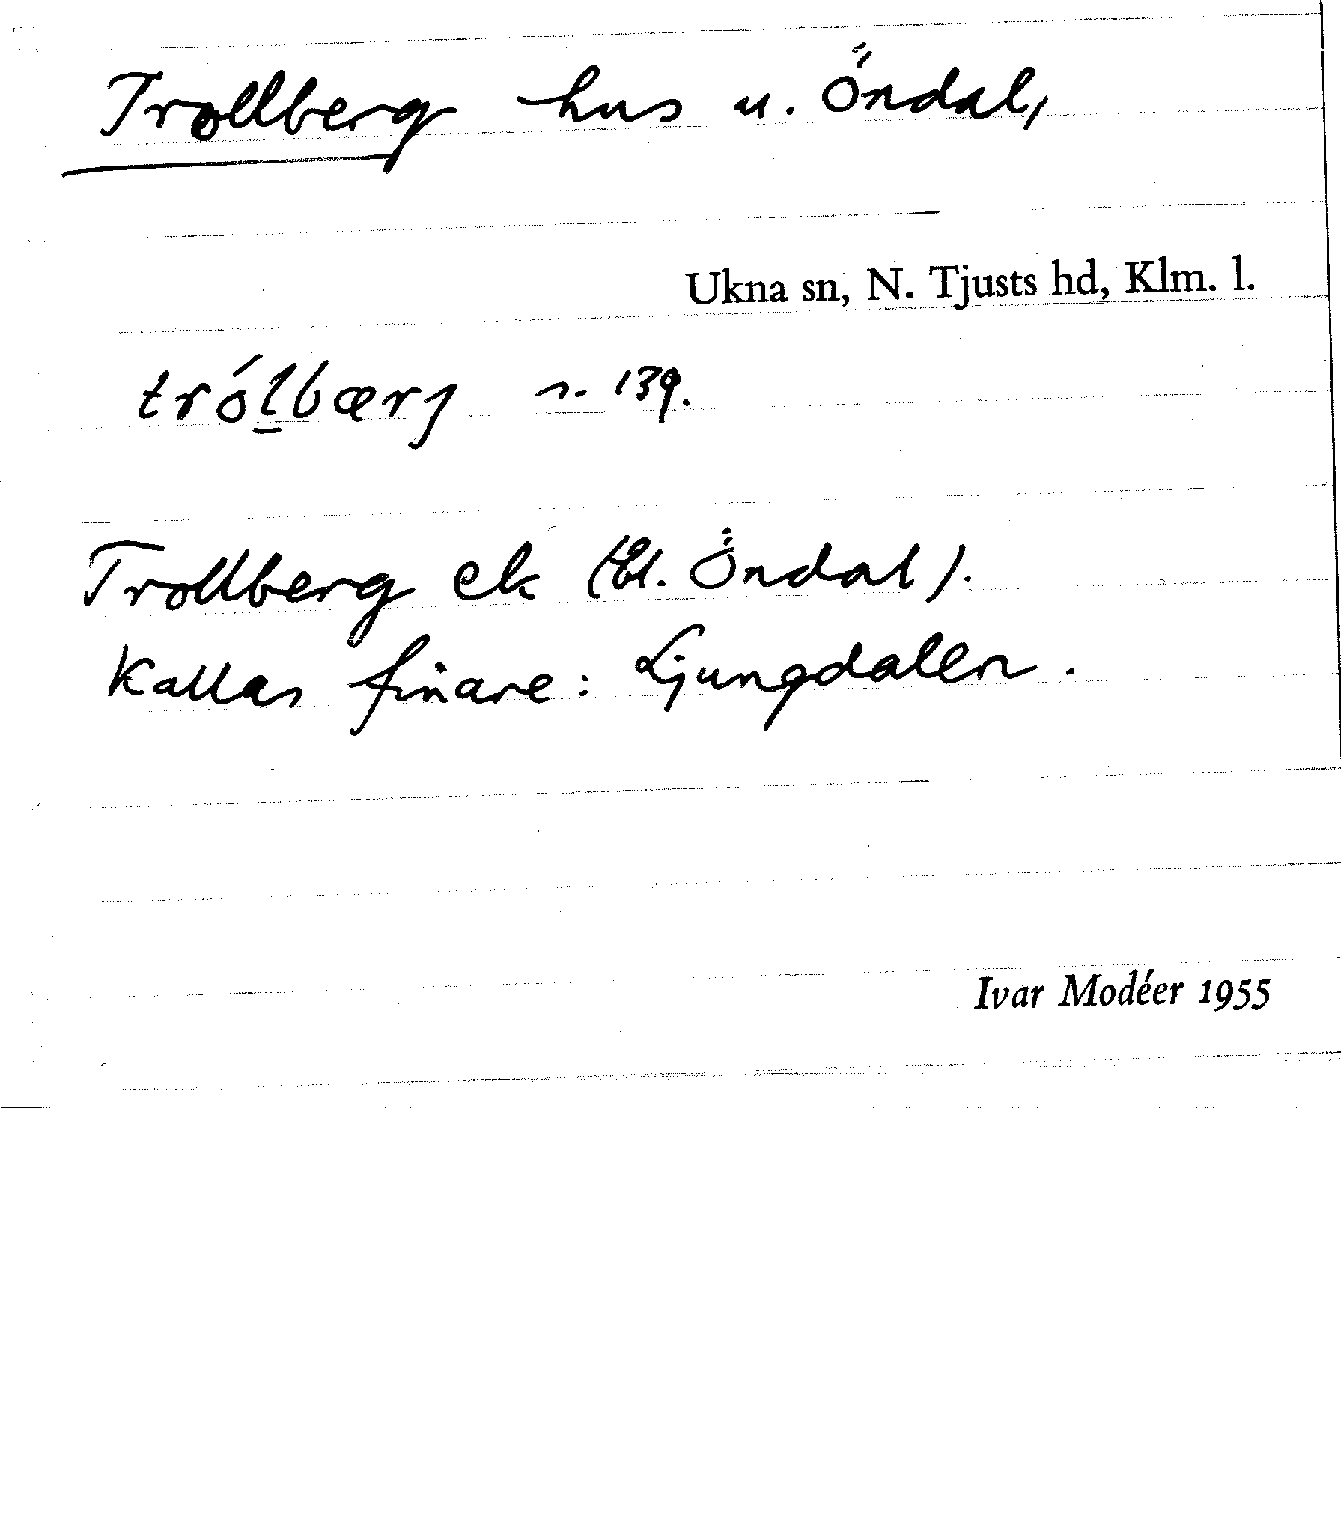 Trollberg hus u. Öndal,
Ukna sn, N. Tjusts hd, Klm. l.
trólbærj s. 139.
Trollberg ek (Bl. Öndal).
Kallas finare: Ljungdalen.
Ivar Modéer 1955